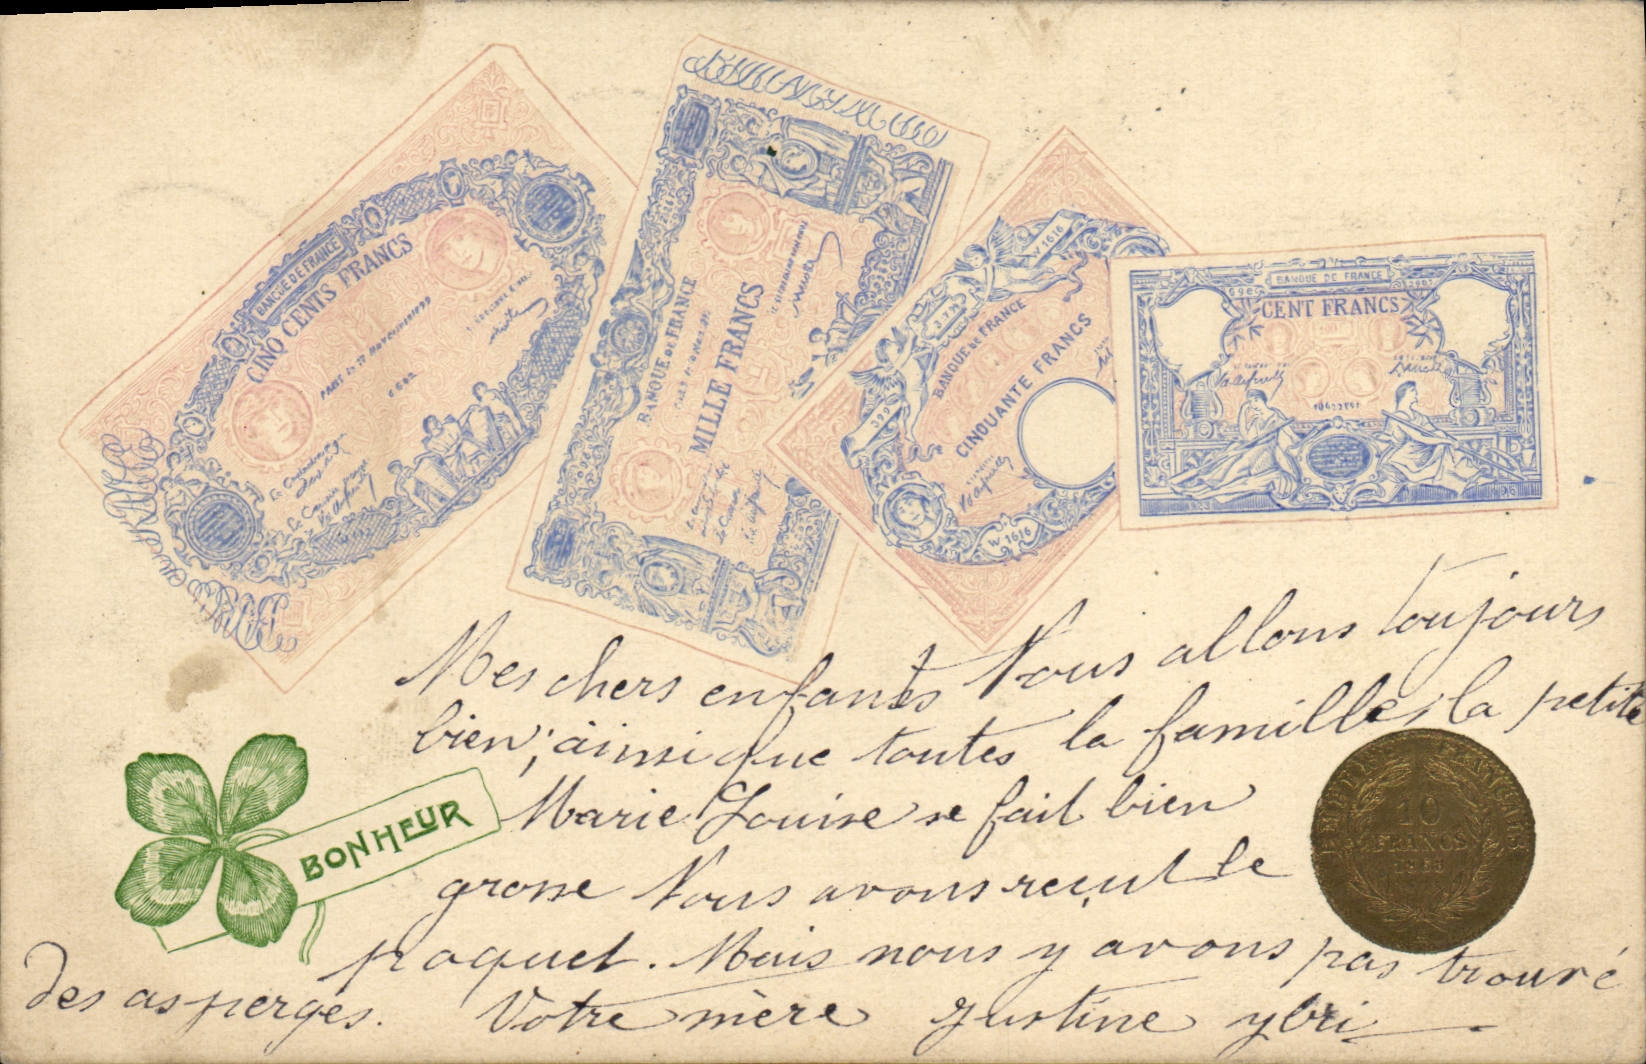 BANQUE DE FRANCE
CINQ CENTS FRANCS
BANQUE DE FRANCE
MILLE FRANCS
W 1616
BANQUE DE FRANCE
CINQUANTE FRANCS
399
W 1616
BANQUE DE FRANCE
CENT FRANCS
Mes chers enfants Nous allons toujours
bien; ainsi que toutes la famille, la petite
Marie Louise se fait bien
grosse Nous avons reçut le
paquet. Mais nous y avons pas trouvé
des asperges. Votre mère Justine ybri
BONHEUR
10
FRANCS